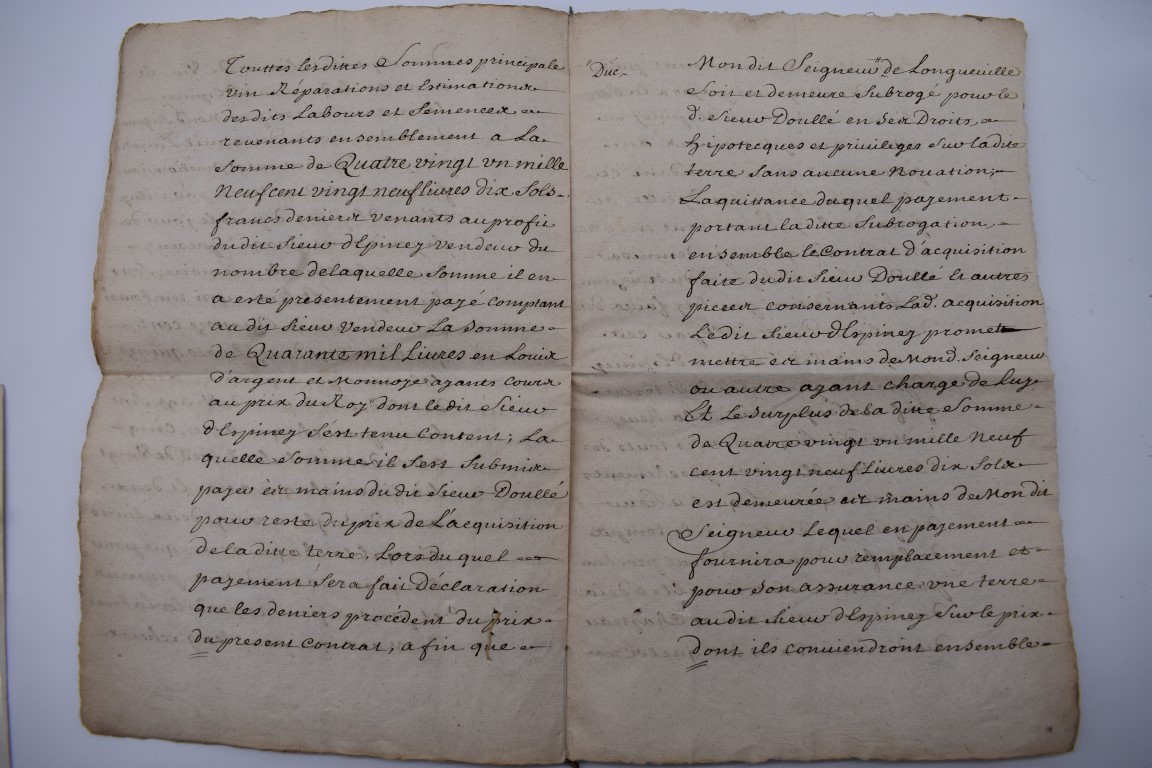 Touttes lesdittes Sommes principale
vin Réparations et Estimations
desdits Labours et Semences
revenants ensemblement a La
Somme de Quatre vingt vn mille
Neufcent vingt neuf livres dix Sols
francs deniers venants au profit
dudit Sieur dEspinez vendeur du
nombre delaquelle Somme il en
a esté présentement payé comptant
audit Sieur vendeur La Somme
de Quarante mil Livres en Louis
d'argent et Monnoye ayants cours
au prix du Roy dont ledit Sieur
dEspinez Sest tenu Content, La
quelle Somme il Sest Submis
payer ès mains dudit Sieur Doullé
pour reste du prix de L'acquisition
de laditte terre, Lors du quel
payement Sera fait Déclaration
que les deniers procédent du prix
du present Contrat, afin que
"Duc Mondit Seigneur" de Longueville
Soit et demeure Subrogé pour le
d. Sieur Doullé en Ses Droits,
hipotecques et privileges Sur ladite
terre Sans aucune Novation,
La quittance duquel payement
portant laditte Subrogation,
ensemble le Contrat d'acquisition
faite dudit Sieur Doullé Et autres
pieces consernants Lad. acquisition
Ledit Sieur dEspinez promet
mettre ès mains de Mond. Seigneur
ou autre ayant charge de Luy
Et Le Surplus de la ditte Somme
de Quatre vingt vn mille Neuf
cent vingt neuf Livres dix Sols
est demeurée ès mains de Mondit
Seigneur Lequel en payement
fournira pour remplacement et
pour Son assurance vne terre
audit Sieur dEspinez Sur le prix
dont ils conviendront ensemble